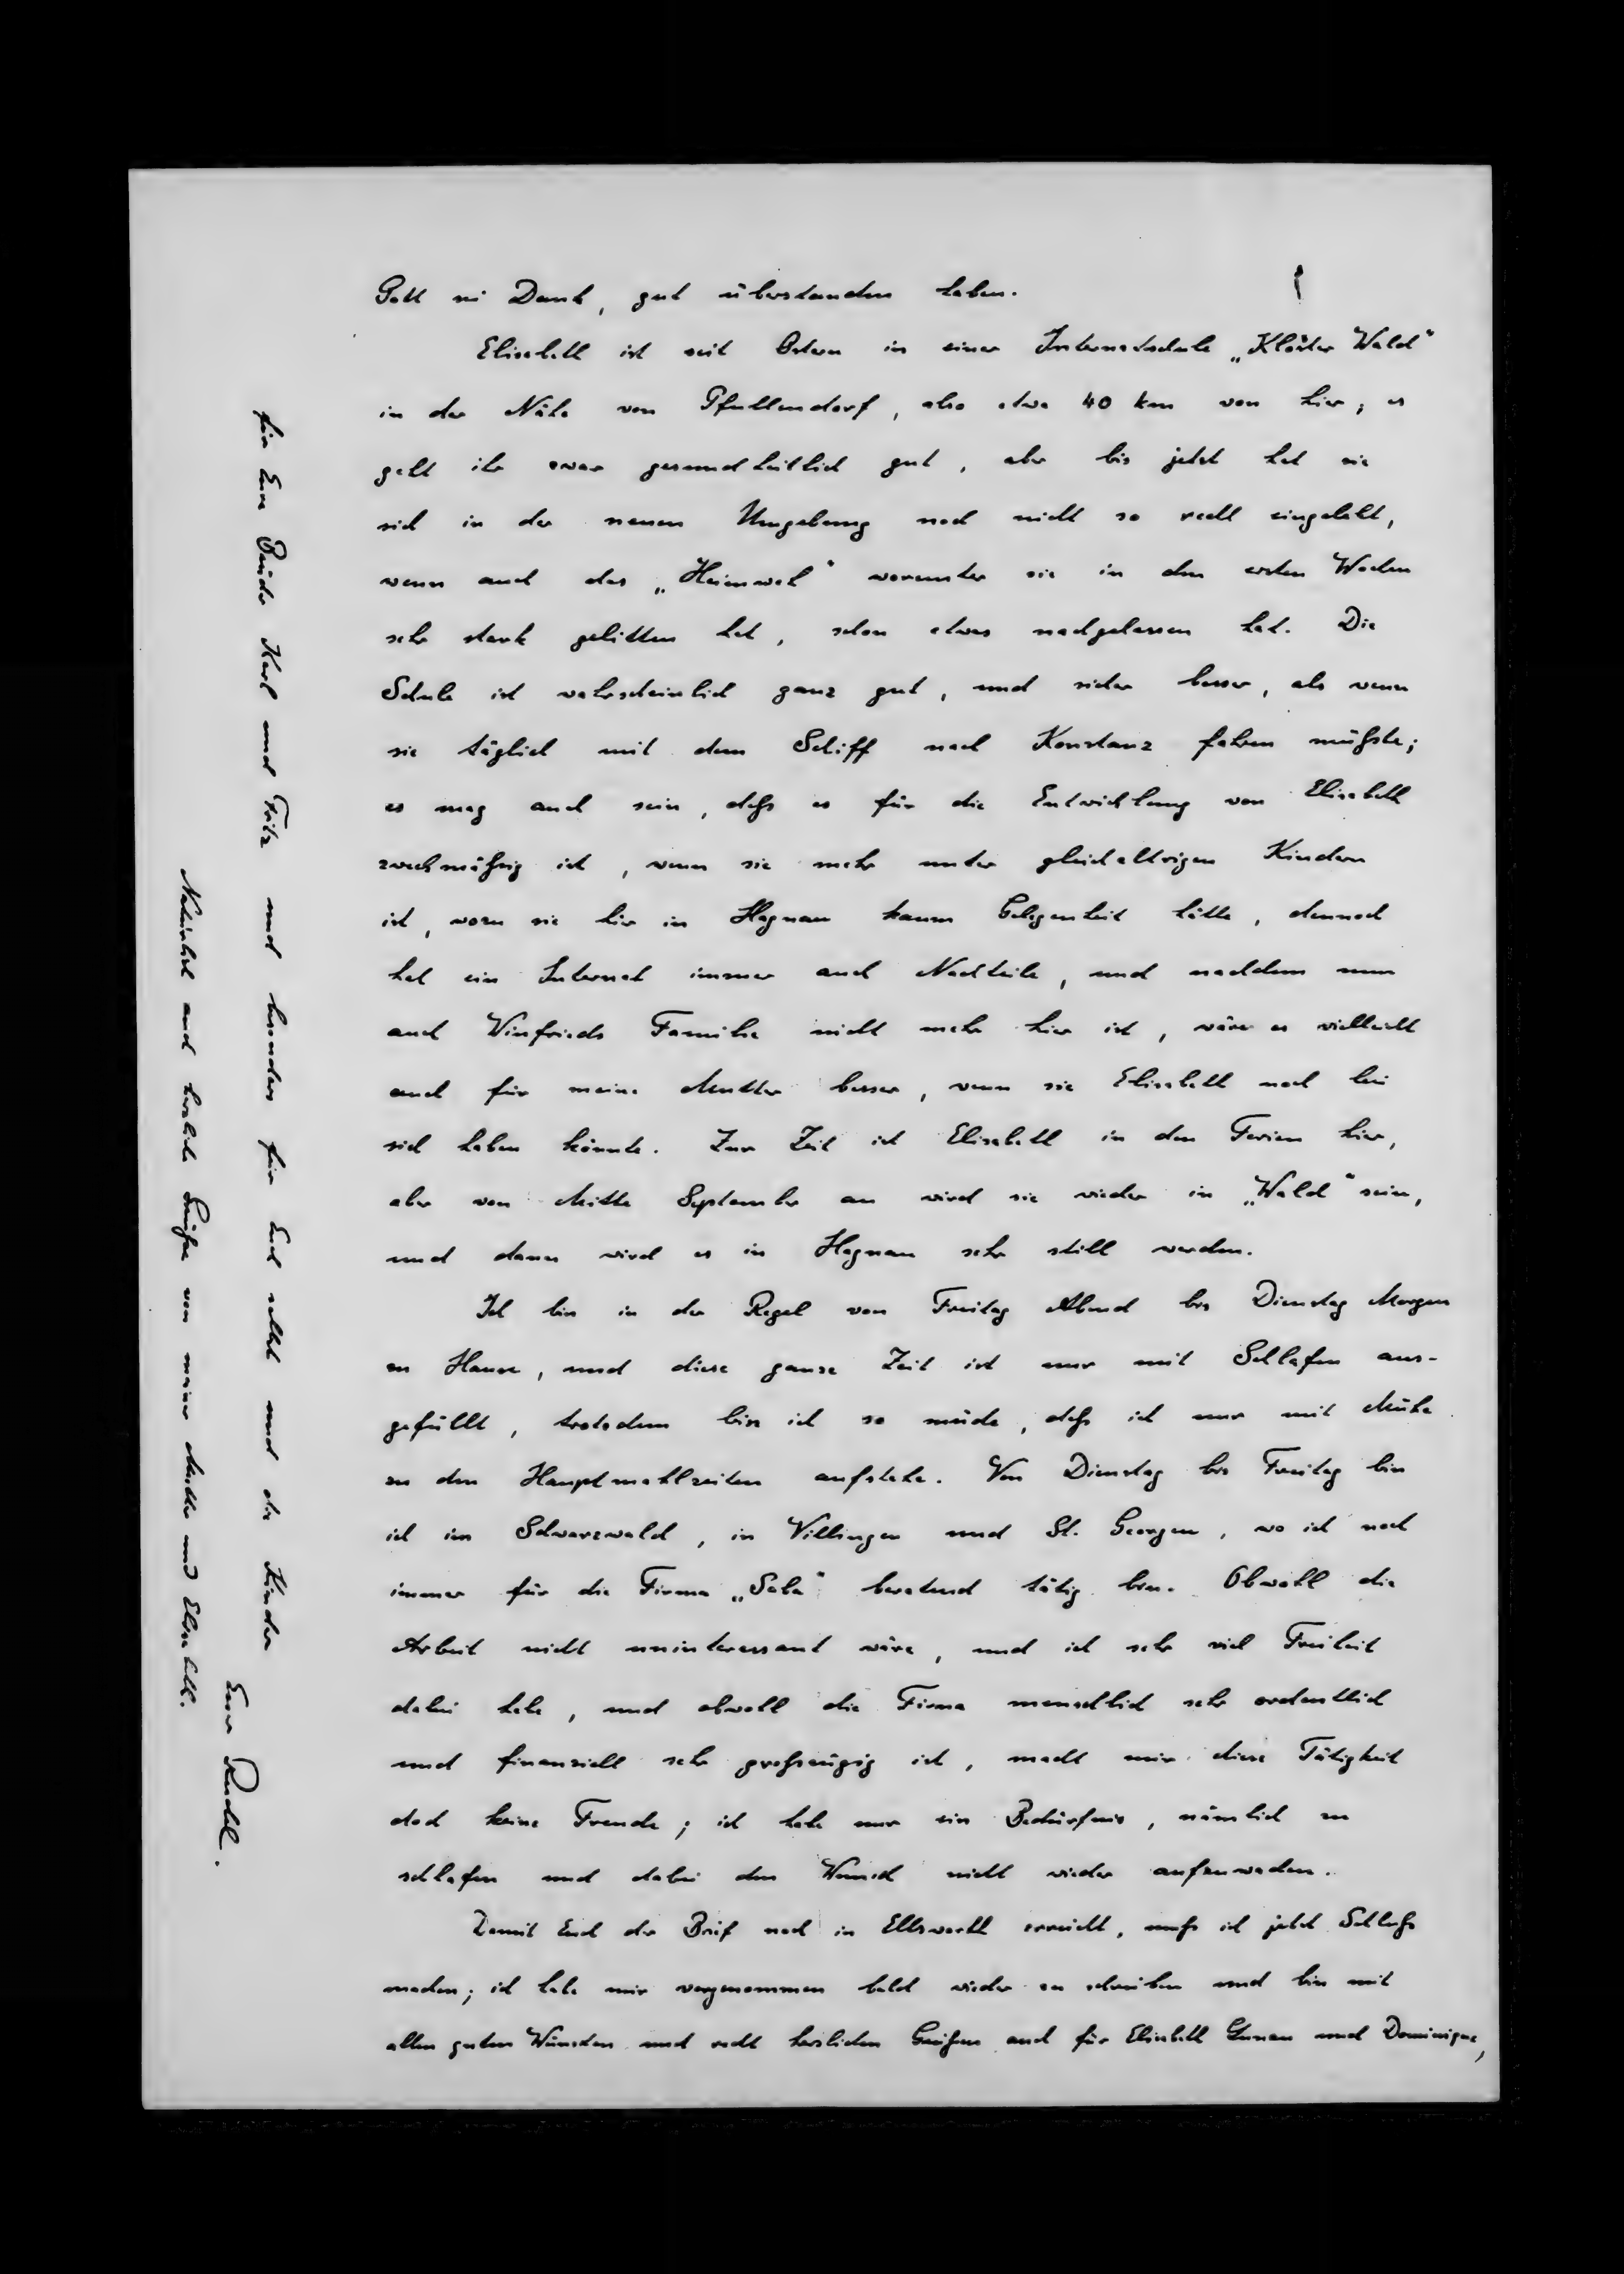 Gott sei Dank, gut überstanden haben.
Elisabeth ist seit Ostern in einer Internatschule „Kloster Wald“
in der Nähe von Pfullendorf, also etwa 40 km von hier; es
geht ihr zwar gesundheitlich gut, aber bis jetzt hat sie
sich in der neuen Umgebung noch nicht so recht eingelebt,
wenn auch das „Heimweh“ worunter sie in den ersten Wochen
sehr stark gelitten hat, schon etwas nachgelassen hat. Die
Schule ist wahrscheinlich ganz gut, und sicher besser, als wenn
sie täglich mit dem Schiff nach Konstanz fahren müßte;
es mag auch sein, daß es für die Entwicklung von Elisabeth
zweckmäßig ist, wenn sie mehr unter gleichaltrigen Kindern
ist, wozu sie hier in Hagnau kaum Gelegenheit hätte, dennoch
hat ein Internat immer auch Nachteile, und nachdem nun
auch Winfrieds Familie nicht mehr hier ist, wäre es vielleicht
auch für meine Mutter besser, wenn sie Elisabeth noch bei
sich haben könnte. Zur Zeit ist Elisabeth in den Ferien hier,
aber von Mitte September an wird sie wieder in „Wald“ sein,
und dann wird es in Hagnau sehr still werden.
Ich bin in der Regel von Freitag Abend bis Dienstag Morgen
zu Hause, und diese ganze Zeit ist nur mit Schlafen aus-
gefüllt, trotzdem bin ich so müde, daß ich nur mit Mühe
zu den Hauptmahlzeiten aufstehe. Von Dienstag bis Freitag bin
ich im Schwarzwald, in Villingen und St. Georgen, wo ich noch
immer für die Firma „Saba“ beratend tätig bin. Obwohl die
Arbeit nicht uninteressant wäre, und ich sehr viel Freiheit
dabei habe, und obwohl die Firma menschlich sehr ordentlich
und finanziell sehr großzügig ist, macht mir diese Tätigkeit
doch keine Freude; ich habe nur ein Bedürfnis, nämlich zu
schlafen und dabei den Wunsch nicht wieder aufzuwachen.
Damit Euch der Brief noch in Ellsworth erreicht, muß ich jetzt Schluß
machen; ich habe mir vorgenommen bald wieder zu schreiben und bin mit
allen guten Wünschen und recht herzlichen Grüßen auch für Elisabeth und Dominique,
für Eure Brüder Karl und Fritz und besonders für Euch selbst und die Kinder
Euer Rudel.
Natürlich auch herzliche Grüße von meiner Mutter und Elisabeth.